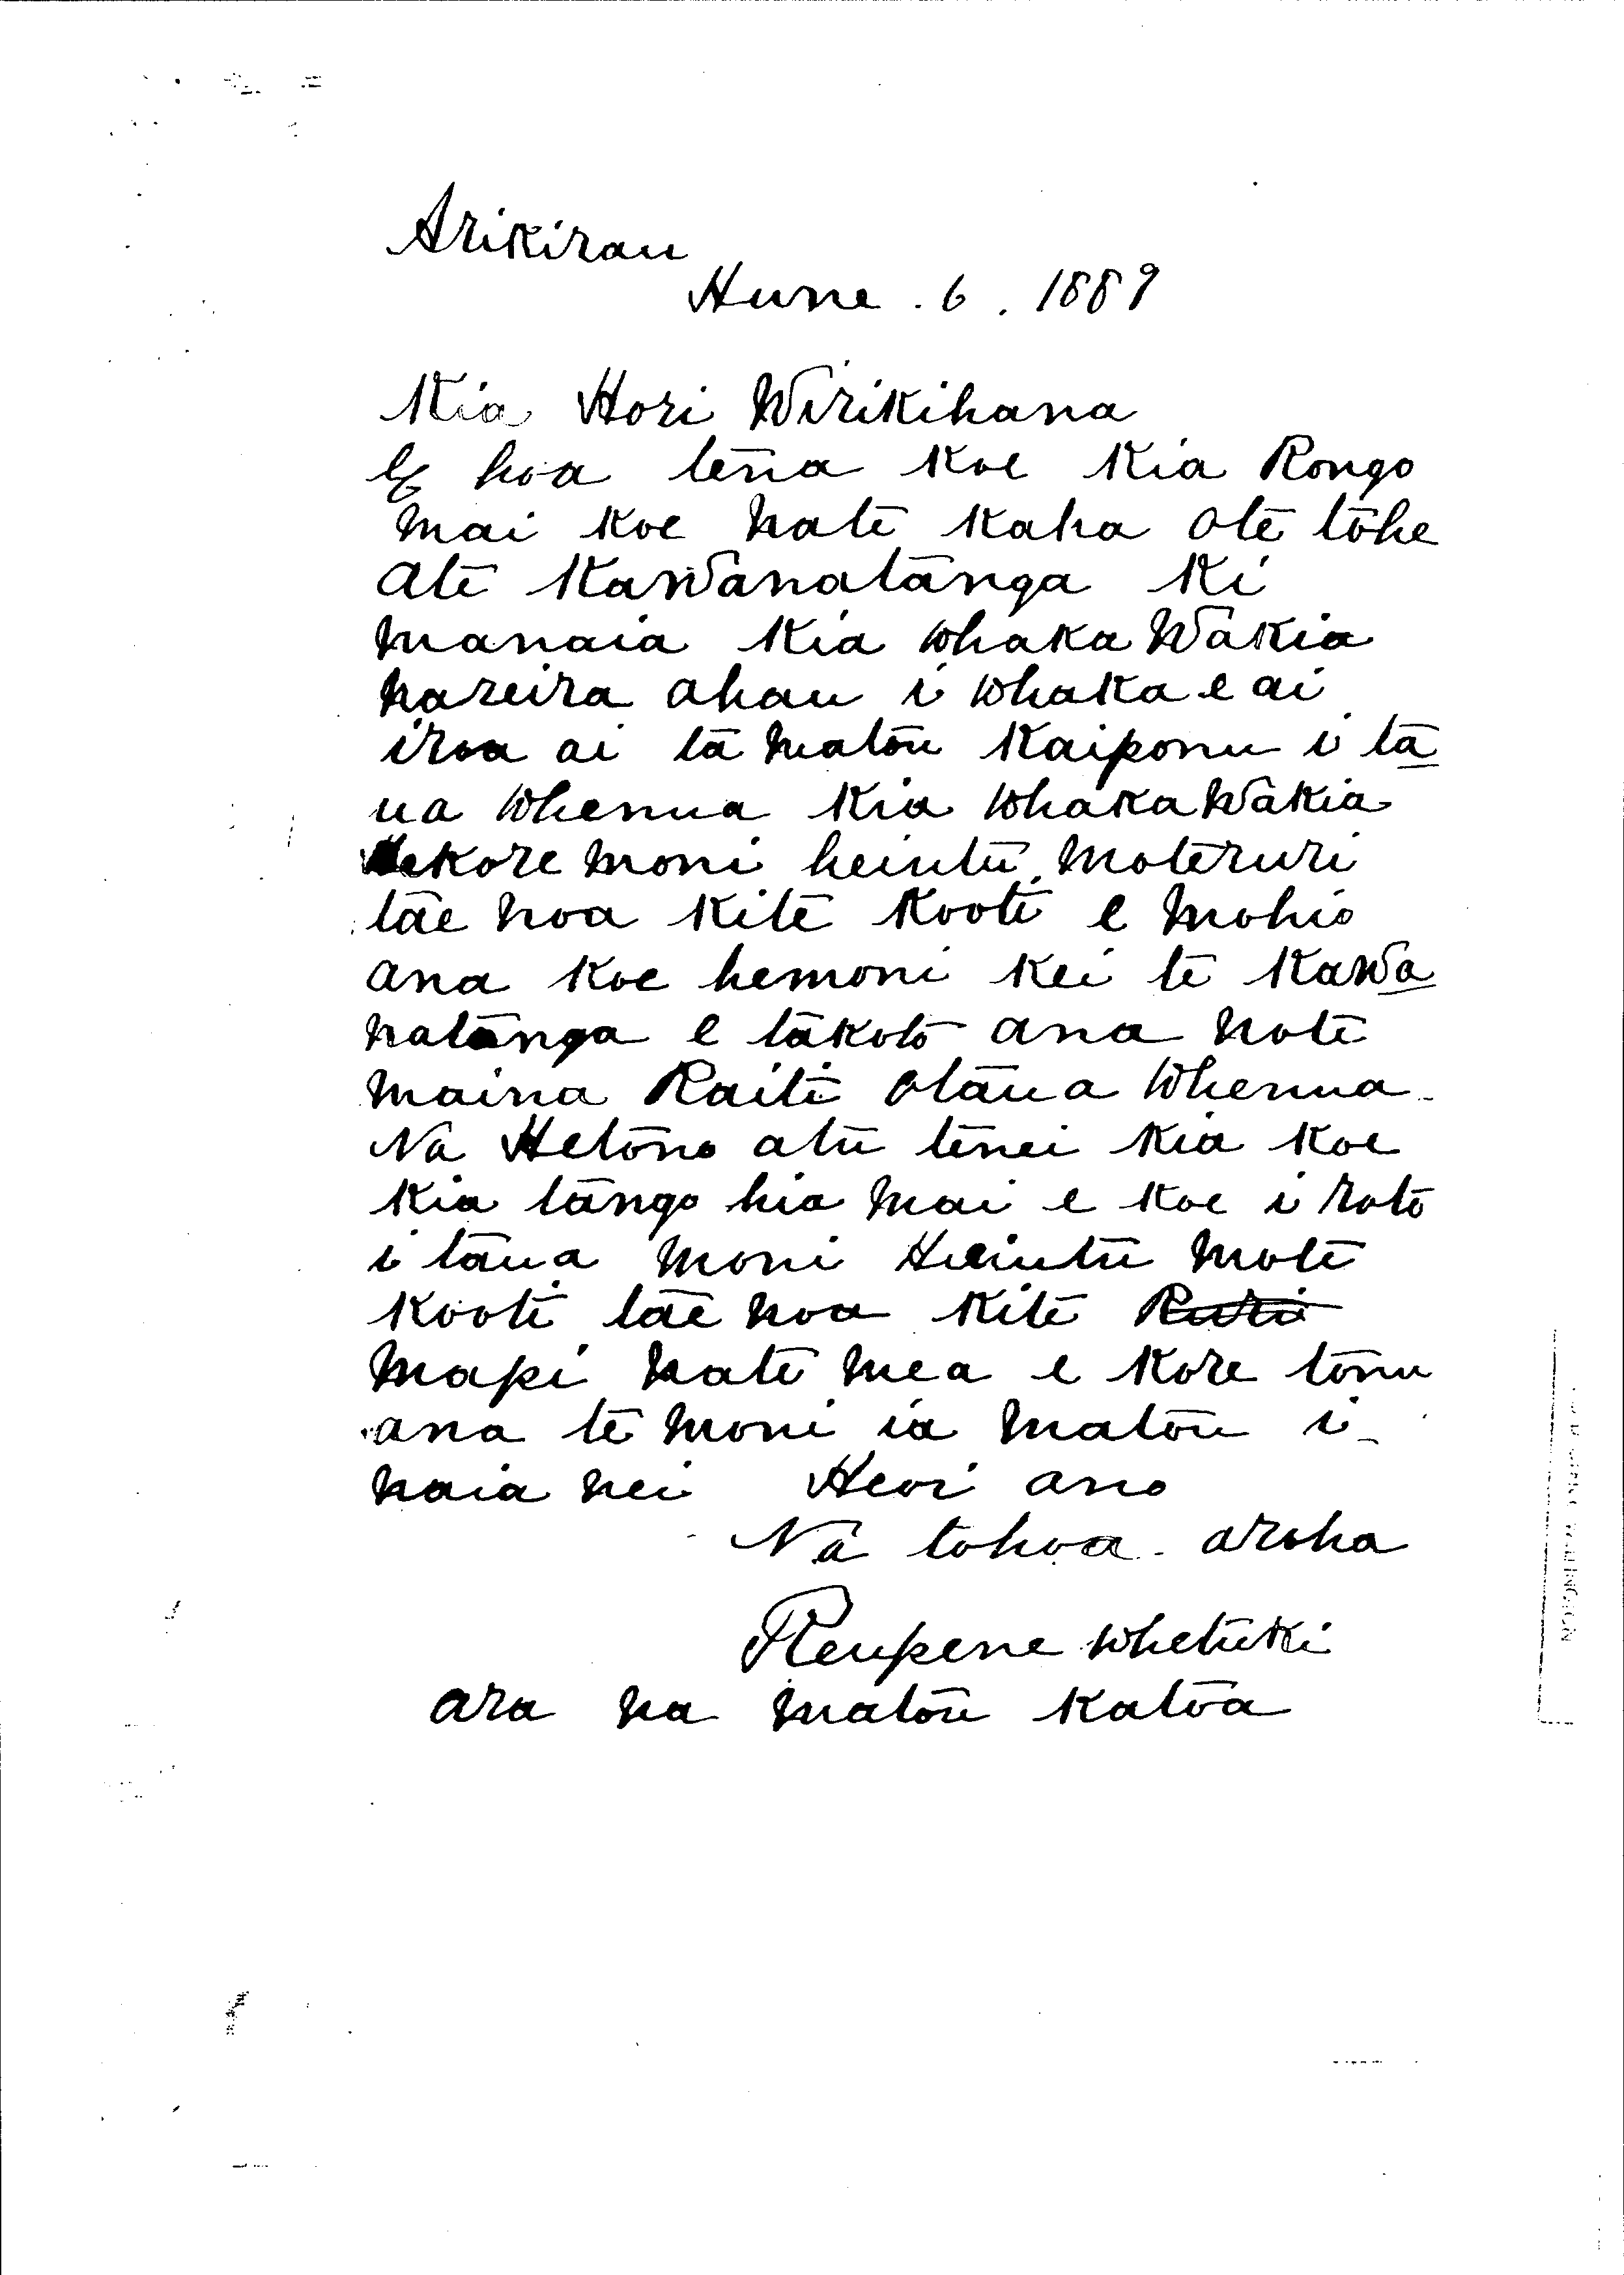 Arikirau
Hune . 6 . 1889
Kia Hori Wirikihana
E hoa tena Koe Kia Rongo
mai Koe nate Kaha ote tohe
ate Kawanatanga Ki
manaia Kia whaka Wakia
nareira ahau i whaka e ai
iroa ai ta matou Kaiponu i ta
ua whenua Kia whaka Wakia
Hekore moni heiutu moteruri
tae noa Kite Kooti e mohio
ana Koe hemoni Kei te Kawa
natanga e takoto ana note
maina Raiti otaua whenua
Na Hetono atu tenei Kia Koe
Kia tango hia mai e Koe i roto
i taua moni Heiutu mote
Kooti tae noa Kite Ruri
mapi nate mea e Kore tonu
ana te moni ia matou i
naia nei Heoi ano
Na tohoa aroha
Reupene whetuki
ara na matou Katoa